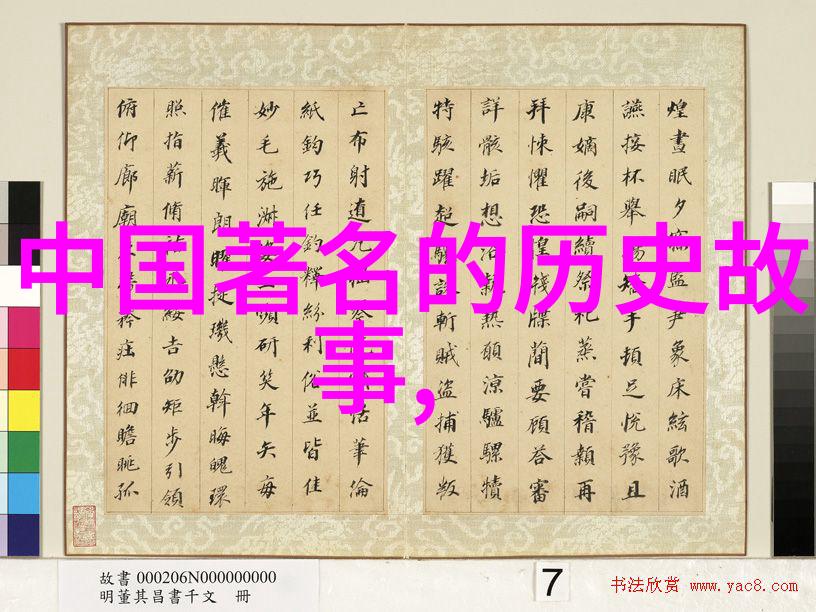 煌晝眠夕寐象床絃歌酒
讌接杯舉觴矯手頓足悅豫且
康嫡後嗣續祭祀蒸嘗稽顙再
拜悚懼恐惶牋牒簡要顧答審
詳骸垢想浴執熱願涼驢騾犢
特駭躍超驤誅斬賊盜捕獲叛
亡布射遼丸嵇琴嘯恬筆倫
紙鈞巧任釣釋紛利俗並皆佳
妙毛施淑姿工顰妍笑年矢每
催羲暉朗曜璣懸斡晦魄環
照指薪脩祜永綏吉劭矩步引領
俯仰廊廟束帶矜莊徘徊瞻眺孤
中国著名的历史故
事,
故書 000206N000000000
明董其昌書千文 冊
7
书法欣赏 www.yac8.com